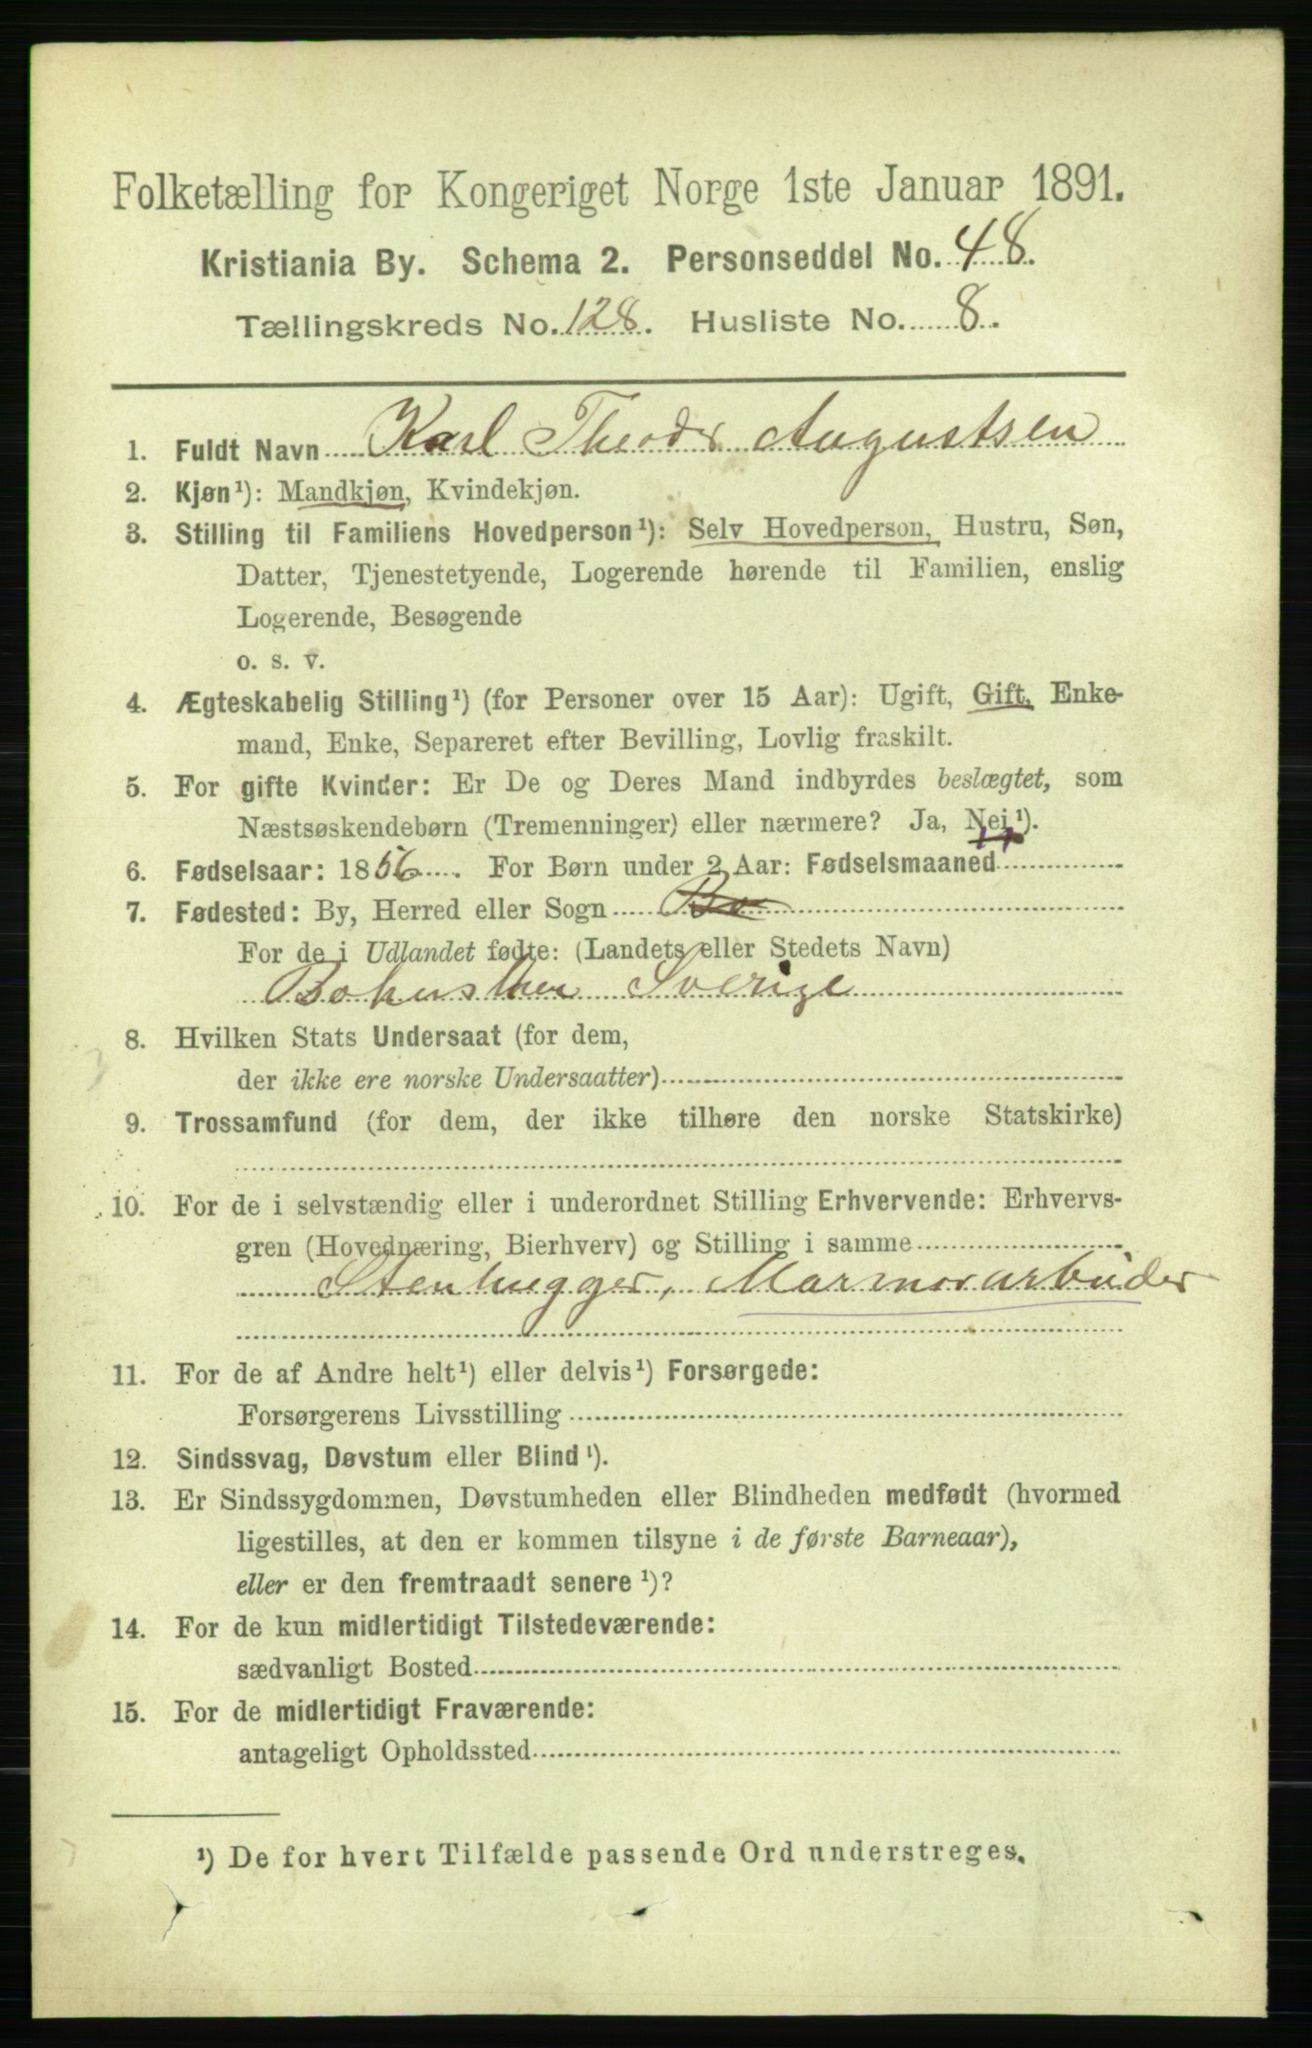 Folketælling for Kongeriget Norge 1ste Januar 1891.
Kristiania By. Schema 2. Personseddel No. 48.
Tællingskreds No. 128. Husliste No. 8.
1. Fuldt Navn Karl Theodor Augustsen
2. Kjøn¹): Mandkjøn, Kvindekjøn.
3. Stilling til Familiens Hovedperson¹): Selv Hovedperson, Hustru, Søn,
Datter, Tjenestetyende, Logerende hørende til Familien, enslig
Logerende, Besøgende
o. s. v.
4. Ægteskabelig Stilling¹) (for Personer over 15 Aar): Ugift, Gift, Enke-
mand, Enke, Separeret efter Bevilling, Lovlig fraskilt.
5. For gifte Kvinder: Er De og Deres Mand indbyrdes beslægtet, som
Næstsøskendebørn (Tremenninger) eller nærmere? Ja, Nei¹).
6. Fødselsaar: 1856. For Børn under 2 Aar: Fødselsmaaned
7. Fødested: By, Herred eller Sogn Bo
For de i Udlandet fødte: (Landets eller Stedets Navn)
Bohuslhen Sverige
8. Hvilken Stats Undersaat (for dem,
der ikke ere norske Undersaatter)
9. Trossamfund (for dem, der ikke tilhøre den norske Statskirke)
10. For de i selvstændig eller i underordnet Stilling Erhvervende: Erhvervs-
gren (Hovednæring, Bierhverv) og Stilling i samme
Stenhugger, Marmorarbeider
11. For de af Andre helt¹) eller delvis¹) Forsørgede:
Forsørgerens Livsstilling
12. Sindssvag, Døvstum eller Blind¹).
13. Er Sindssygdommen, Døvstumheden eller Blindheden medfødt (hvormed
ligestilles, at den er kommen tilsyne i de første Barneaar),
eller er den fremtraadt senere¹)?
14. For de kun midlertidigt Tilstedeværende:
sædvanligt Bosted
15. For de midlertidigt Fraværende:
antageligt Opholdssted
¹) De for hvert Tilfælde passende Ord understreges.